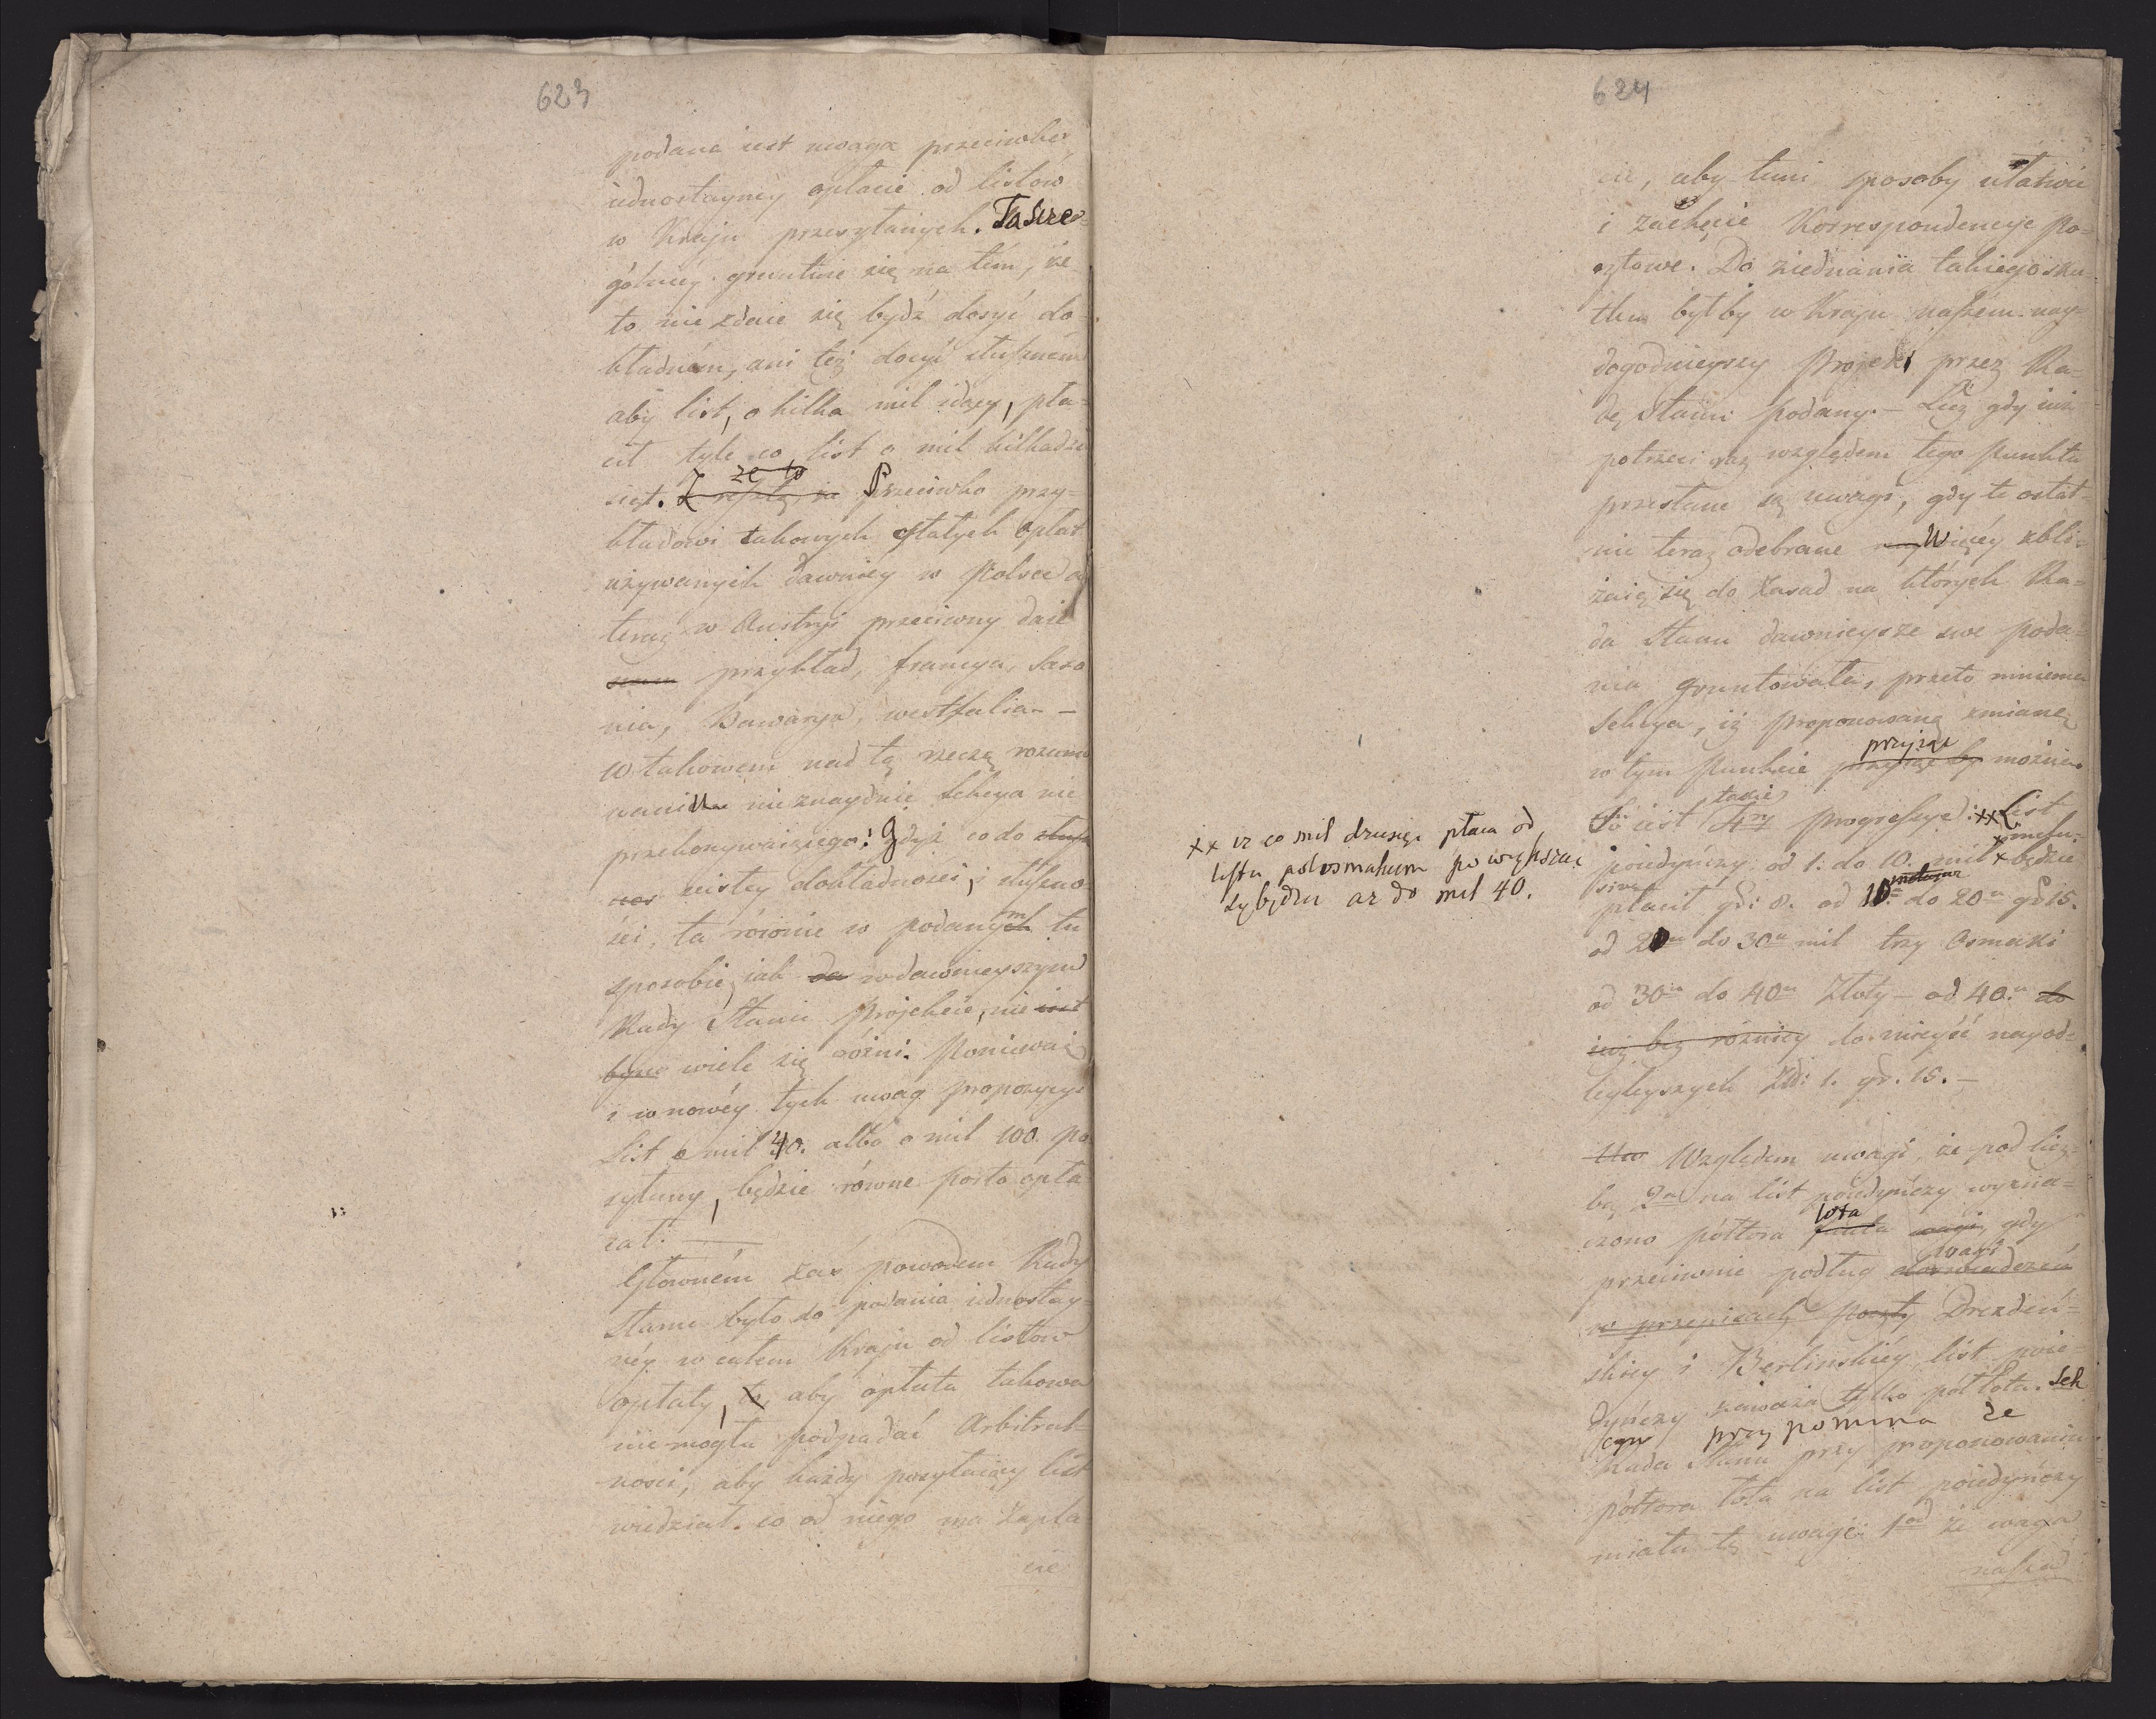 623
podana iest uwaga przeciwko
iednostayney opłacie od listow
w Kraju przesyłanych. Ta szcze-
gólniey gruntuie się na tém, że
to nie zdaie się bydź dosyć do-
kładném, ani też dosyć słusznem
aby list, o kilka mil idący, pła-
cił tyle co list o mil kilkadzie
siąt. Przeciwko przy-
kładowi takowych stałych opłat
używanych dawniey w Polsce a
teraz w Austryi przeciwny daie
przykład, francya, Saxo
nia, Bawarya, westfalia. —
W takowem nad tą rzeczą rozumo
waniu nie znayduie Sekcya nic
przekonywaiącego: Gdyż co do
scisłey dokładności, i słuszno-
ści, ta równie w podanym tu
sposobie, iak w dawnieyszym
Rady Stanu Projekcie, nie
wiele się różni. Ponieważ
i w nowéy tych uwag propozycyi
List o mil 40. albo o mil 100. po
syłany, będzie równe porto opła
cał. —
Główném zaś powodem Rady
Stanu było do podania iednostay-
néy w całem Kraju od listow
opłaty, aby opłata takowa
nie mogła podpadać Arbitral-
ności, aby każdy posyłaiący list
wiedział. co od niego ma zapła
cić
624
cić, aby temi sposoby ułatwić
i zachęcić Korrespondencye Po-
cztowe. Do ziednania takiego sku-
tku byłby w Kraju naszém nay-
dogodnieyszy Projekt przez Ra-
dę Stanu podany. — Lecz gdy iuż
potrzeci raz względem tego Punktu
przesłane są uwagi, gdy te ostat-
nie teraz odebrane Więcéy zbli-
żaią się do Zasad na których Ra-
da Stanu dawnieysze swe poda-
nia gruntowała, przeto mniema
Sekcya, iż proponowaną zmianę
w tym Punkcie przyjąć można.
To iest taka Progressya: xx List
poiedyńczy od 1. do 10. mil x będzie
płacił gr: 8. od 10a do 20u gr 15.
od 20u do 30u mil trzy Osmaki
od 30u do 40u Złoty — od 40.u
do mieysć nayod-
legleyszych Zł: 1. gr. 15. —
xx iż co mil dziesięc płaca od
listu pół osmakiem powiększac
się będzie aż do mil 40.
Względem uwagi, że pod licz-
bą 2a na list poiedyńczy wyzna-
czono półtora łota gdy
przeciwnie podług wagi
Drezdeń-
skiey i Berlinskiéy list poie-
dyńczy zaważa tylko pół łota. Sek
cya przypomina że
Rada Stanu przy proponowaniu
półtora łota na list poiedyńczy
miała tę uwagę: 1od że waga
nasza